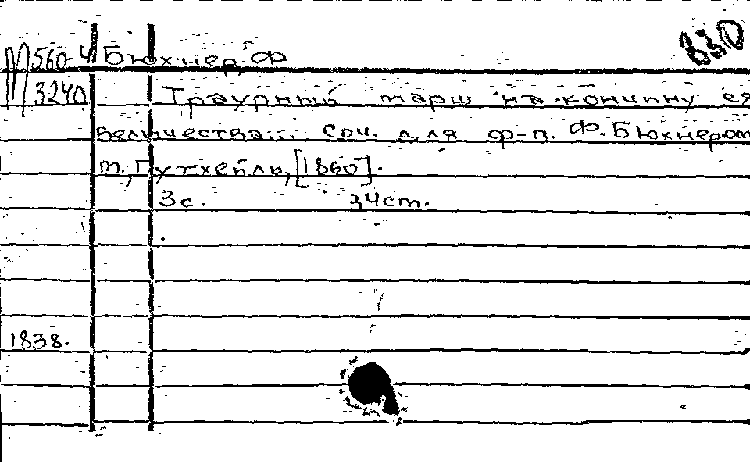 М 560-4 Бюхнер, Ф
3240 Траурный марш на кончину ея
величества... Соч. для ф-п. Ф. Бюхнером
М., Гутхейль, [1860].
3 с. 34 см.
1838.